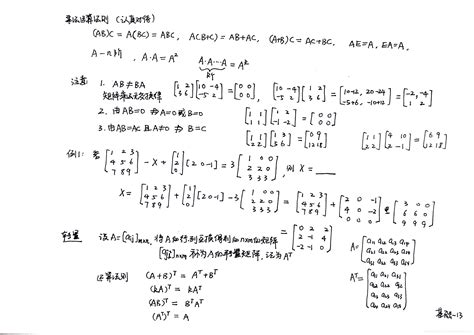 乘法运算法则 (认真对待)
(AB)C = A(BC) = ABC, A(B+C) = AB+AC, (A+B)C = AC+BC, AE=A, EA=A,
A — n阶, A·A = A² A·A⋯A = A^k
k个
注意 1. AB ≠ BA [1 2; 3 6] [10 -4; -5 2] = [0 0; 0 0], [10 -4; -5 2] [1 2; 3 6] = [10-12, 20-24; -5+6, -10+12] = [-2, -4; 1 2]
矩阵乘法无交换律
2. 由AB=0 ⇏ A=0或B=0 [1 1; 1 1] [1 2; -1 -2] = [0 0; 0 0]
3. 由AB=AC 且A≠0 ⇏ B=C [1 1; 2 2] [1 3; 6] = [6 9; 12 18] [1 1; 2 2] [4 10; 2 -1] = [6 9; 12 18]
例1: 若 [1 2 3; 4 5 6; 7 8 9] - X + [1; 2; 0] [2 0 -1] = 3 [1 0 0; 2 2 0; 3 3 3], 则 X = ____
X = [1 2 3; 4 5 6; 7 8 9] + [1; 2; 0] [2 0 -1] - 3 [1 0 0; 2 2 0; 3 3 3] = [1 2 3; 4 5 6; 7 8 9] + [2 0 -1; 4 0 -2; 0 0 0] - [3 0 0; 6 6 0; 9 9 9]
= [0 2 2; 2 -1 4; -2 -1 0]
转置 设 A=[aij]m×n, 将A的行列互换得到的n×m的矩阵
[aji]n×m 称为A的转置矩阵, 记为 A^T
A = [a11 a12 a13 a14; a21 a22 a23 a24; a31 a32 a33 a34]
运算法则 (A+B)^T = A^T+B^T
(kA)^T = kA^T
(AB)^T = B^T A^T
(A^T)^T = A
A^T = [a11 a21 a31; a12 a22 a32; a13 a23 a33; a14 a24 a34]